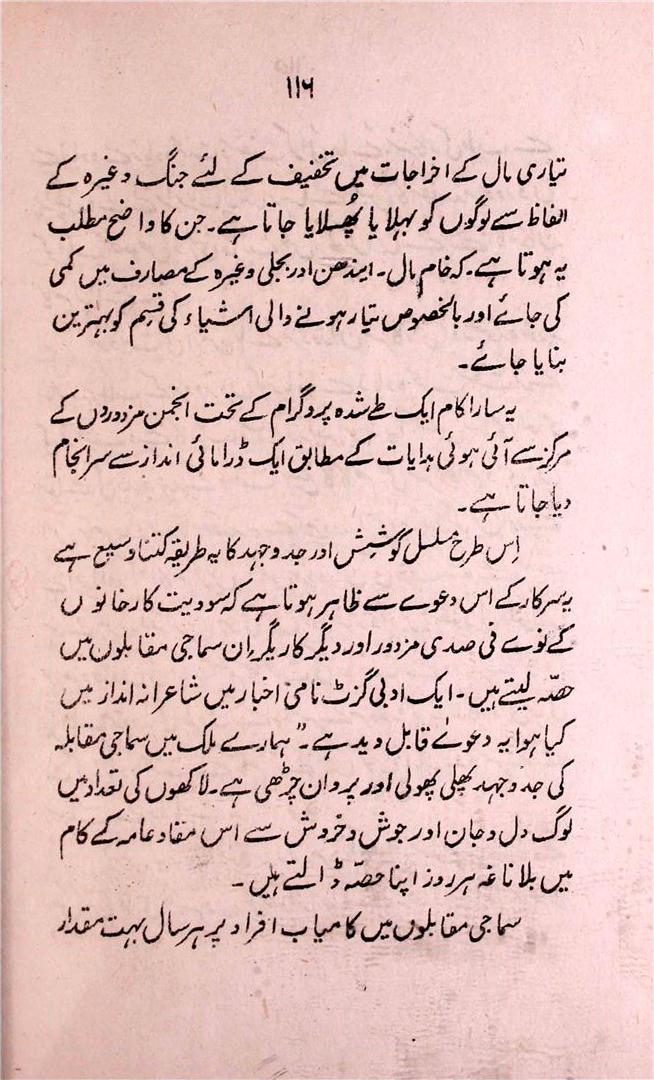 ۱۱۶
تیاری مال کے اخراجات میں تخفیف کے لئے جنگ وغیرہ کے
الفاظ سے لوگوں کو بہلایا پھُسلایا جاتا ہے۔ جن کا واضح مطلب
یہ ہوتا ہے۔ کہ خام مال۔ ایندھن اور بجلی وغیرہ کے مصارف میں کمی
کی جائے اور بالخصوص تیار ہونے والی اشیاء کی قسم کو بہترین
بنایا جائے۔
یہ سارا کام ایک طے شدہ پروگرام کے تحت انجمن مزدوروں کے
مرکز سے آئی ہوئی ہدایات کے مطابق ایک ڈرامائی انداز سے سرانجام
دیا جاتا ہے۔
اِس طرح مسلسل کوشش اور جدوجہد کا یہ طریقہ کتنا وسیع ہے
یہ سرکار کے اس دعوے سے ظاہر ہوتا ہے کہ سوویت کارخانوں
کے نوے فی صدی مزدور اور دیگر کاریگر اِن سماجی مقابلوں میں
حصّہ لیتے ہیں۔ ایک ادبی گزٹ نامی اخبار میں شاعرانہ انداز میں
کیا ہوا یہ دعوےٰ قابل دید ہے۔ ”ہمارے ملک میں سماجی مقابلہ
کی جدوجہد پھلی پھولی اور پروان چڑھی ہے۔ لاکھوں کی تعداد میں
لوگ دل و جان اور جوش و خروش سے اس مفاد عامہ کے کام
میں بلا ناغہ ہر روز اپنا حصّہ ڈالتے ہیں۔
سماجی مقابلوں میں کامیاب افراد پر ہر سال بہت مقدار